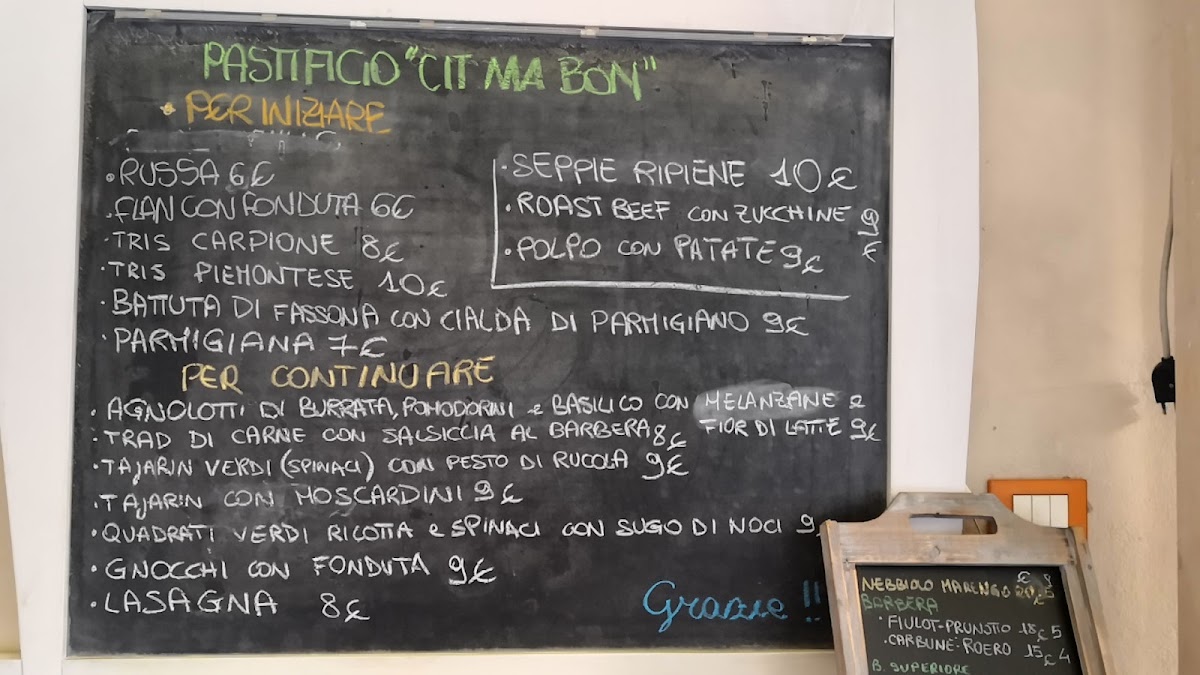 PASTIFICIO "CIT MA BON"
• PER INIZIARE
• RUSSA 6€
• FLAN CON FONDUTA 6€
• TRIS CARPIONE 8€
• TRIS PIEMONTESE 10€
• BATTUTA DI FASSONA CON CIALDA DI PARMIGIANO 9€
• PARMIGIANA 7€
• SEPPIE RIPIENE 10€
• ROAST BEEF CON ZUCCHINE 9€
• POLPO CON PATATE 9€
PER CONTINUARE
• AGNOLOTTI DI BURRATA, POMODORINI e BASILICO CON MELANZANE e
FIOR DI LATTE 9€
• TRAD DI CARNE CON SALSICCIA AL BARBERA 8€
• TAJARIN VERDI (SPINACI) CON PESTO DI RUCOLA 9€
• TAJARIN CON MOSCARDINI 9€
• QUADRATI VERDI RICOTTA e SPINACI CON SUGO DI NOCI 9
• GNOCCHI CON FONDUTA 9€
• LASAGNA 8€
Grazie !!
NEBBIOLO MARENGO 20€ 5
BARBERA
• FIULOT-PRUNOTTO 18€ 5
• CARBUNE-ROERO 15€ 4
B. SUPERIORE